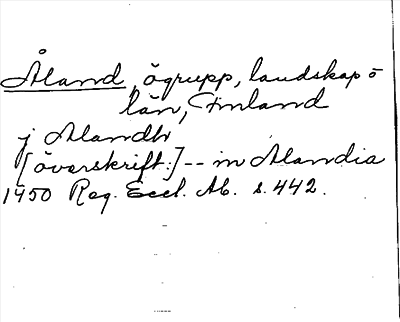 Åland, ögrupp, landskap o
län, Finland
j Alandh
[överskrift:] -- in Alandia
1450 Reg. Eccl. Ab. s. 442.